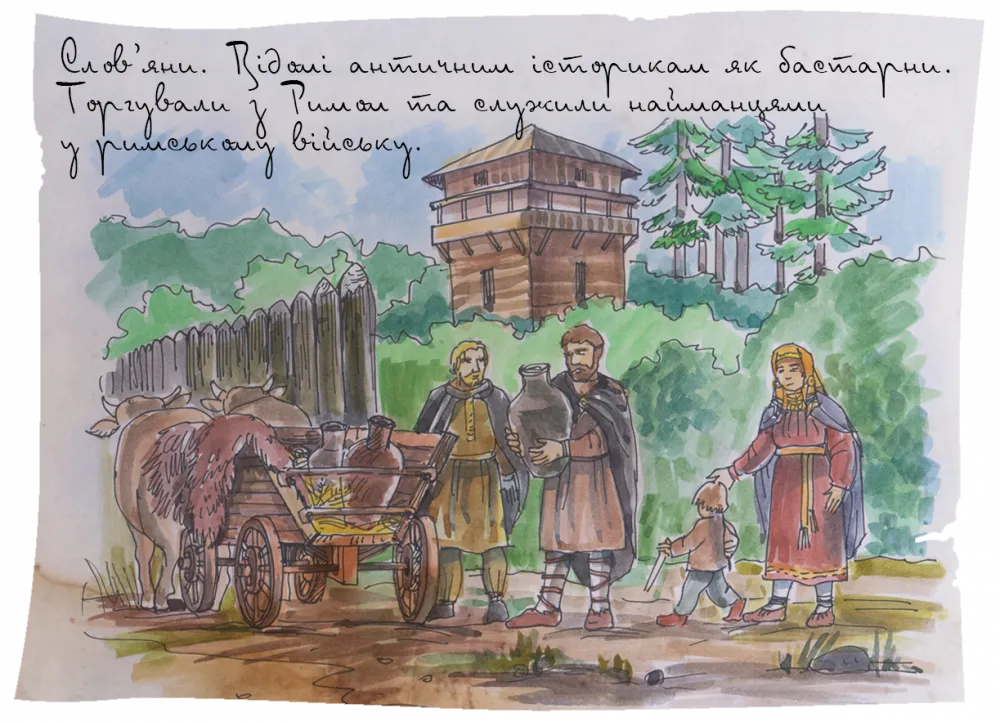 Слов'яни. Відомі античним історикам як бастарни.
Торгували з Римом та служили найманцями
у римському війську.